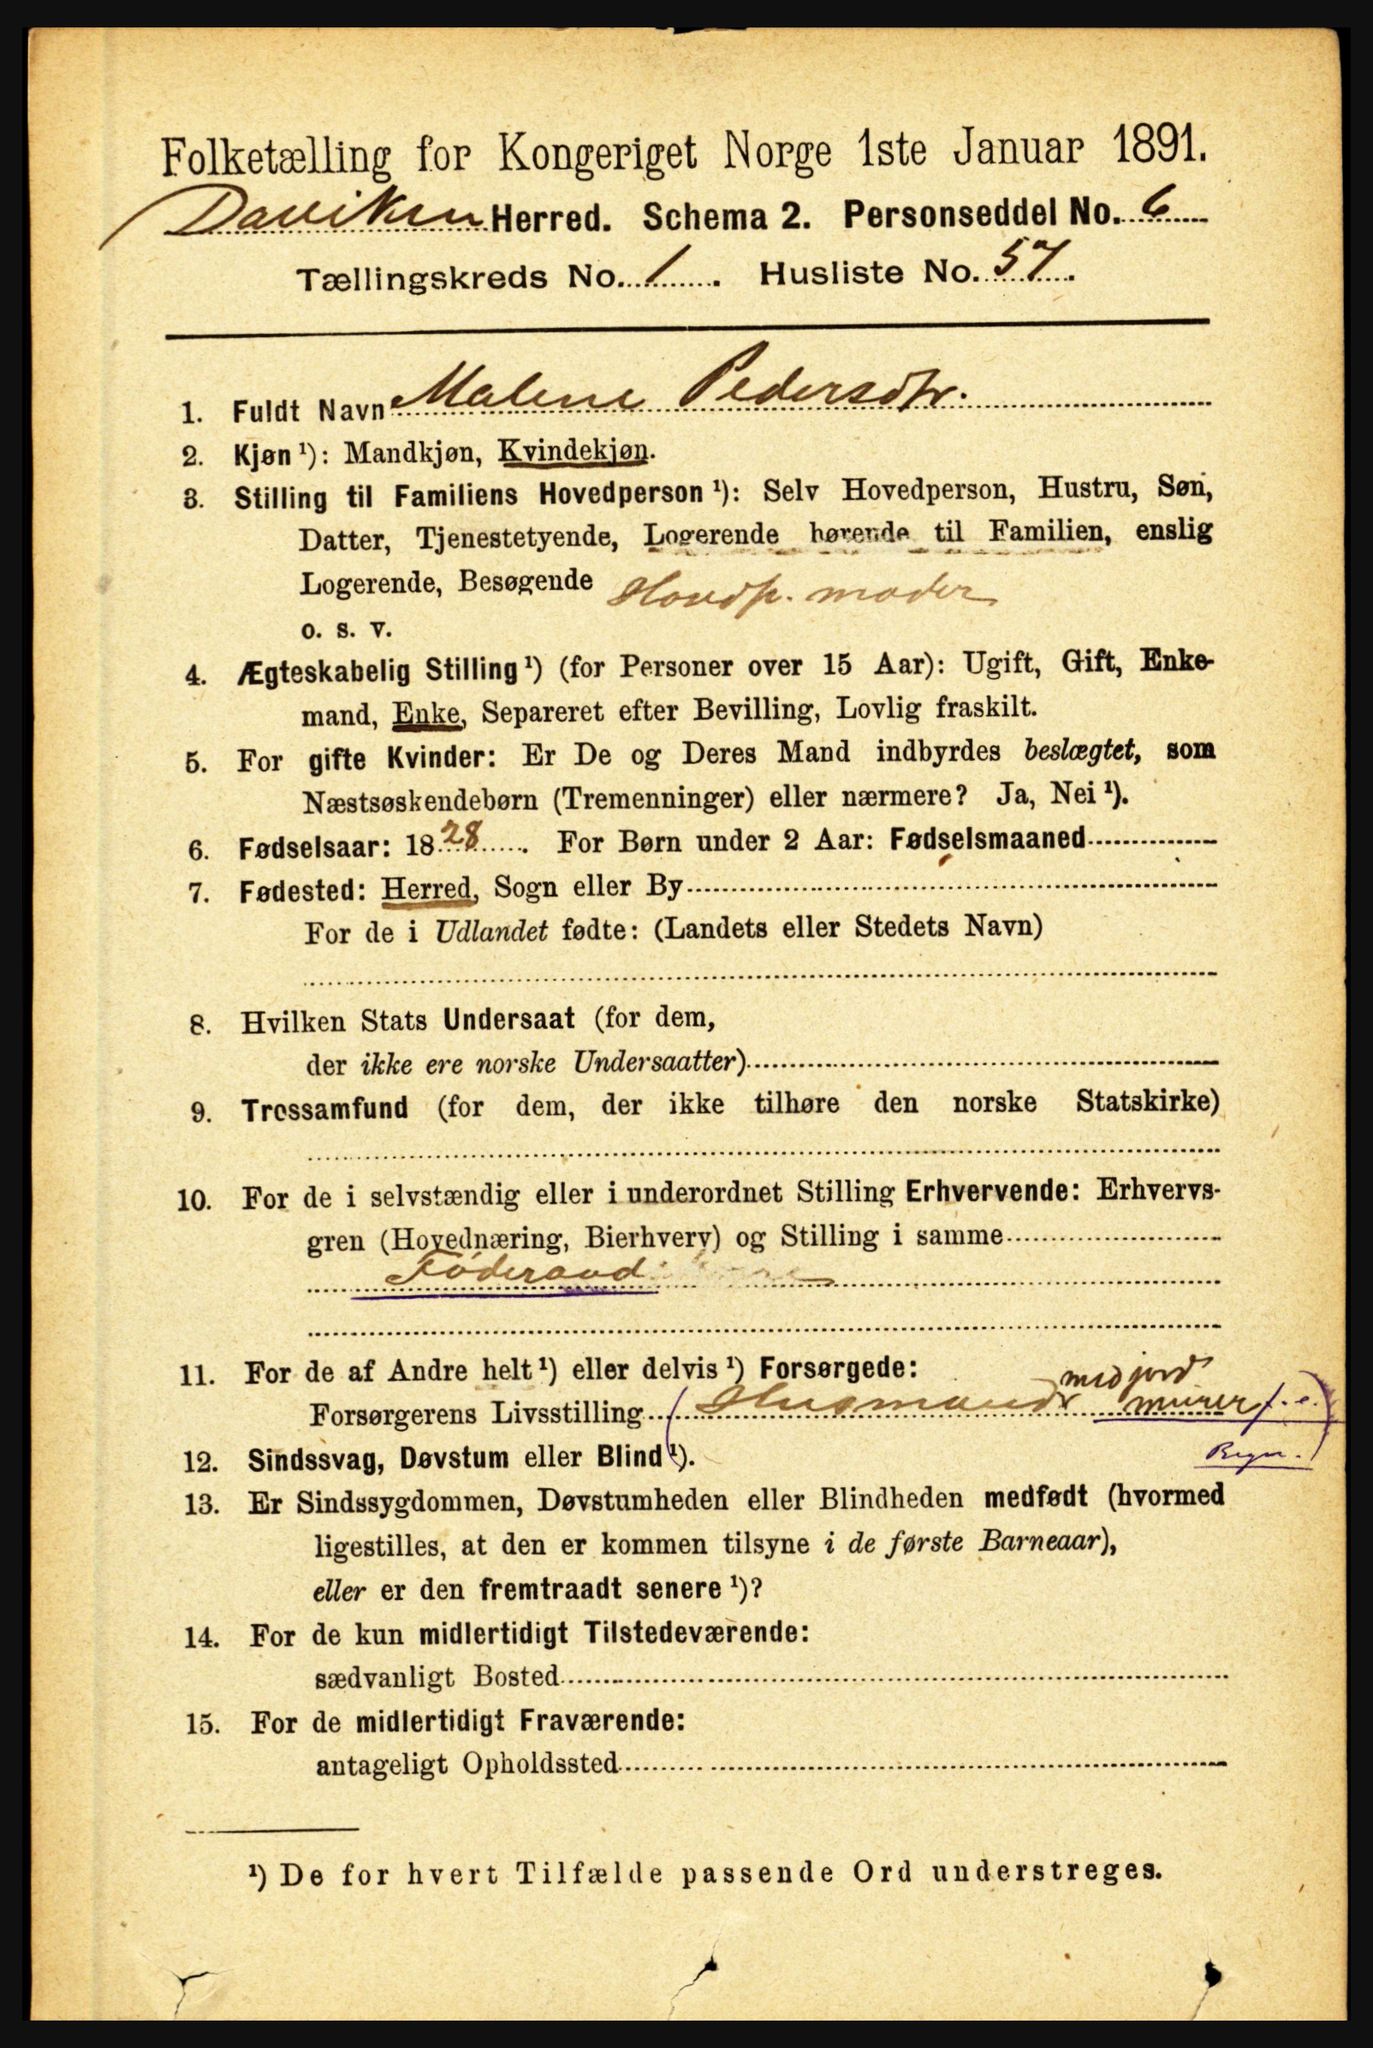 Folketælling for Kongeriget Norge 1ste Januar 1891.
Daviken Herred. Schema 2. Personseddel No. 6
Tællingskreds No. 1. Husliste No. 57.
1. Fuldt Navn Malene Pedersdtr.
2. Kjøn ¹): Mandkjøn, Kvindekjøn.
3. Stilling til Familiens Hovedperson ¹): Selv Hovedperson, Hustru, Søn,
Datter, Tjenestetyende, Logerende hørende til Familien, enslig
Logerende, Besøgende Hovedp. moder
o. s. v.
4. Ægteskabelig Stilling ¹) (for Personer over 15 Aar): Ugift, Gift, Enke-
mand, Enke, Separeret efter Bevilling, Lovlig fraskilt.
5. For gifte Kvinder: Er De og Deres Mand indbyrdes beslægtet, som
Næstsøskendebørn (Tremenninger) eller nærmere? Ja, Nei ¹).
6. Fødselsaar: 1828. For Børn under 2 Aar: Fødselsmaaned
7. Fødested: Herred, Sogn eller By
For de i Udlandet fødte: (Landets eller Stedets Navn)
8. Hvilken Stats Undersaat (for dem,
der ikke ere norske Undersaatter)
9. Trossamfund (for dem, der ikke tilhøre den norske Statskirke)
10. For de i selvstændig eller i underordnet Stilling Erhvervende: Erhvervs-
gren (Hovednæring, Bierhverv) og Stilling i samme
Føderaad
11. For de af Andre helt ¹) eller delvis ¹) Forsørgede:
med jord
Forsørgerens Livsstilling (Husmand murer f. e.)
12. Sindssvag, Døvstum eller Blind ¹).
13. Er Sindssygdommen, Døvstumheden eller Blindheden medfødt (hvormed
ligestilles, at den er kommen tilsyne i de første Barneaar),
eller er den fremtraadt senere ¹)?
14. For de kun midlertidigt Tilstedeværende:
sædvanligt Bosted
15. For de midlertidigt Fraværende:
antageligt Opholdssted
¹) De for hvert Tilfælde passende Ord understreges.